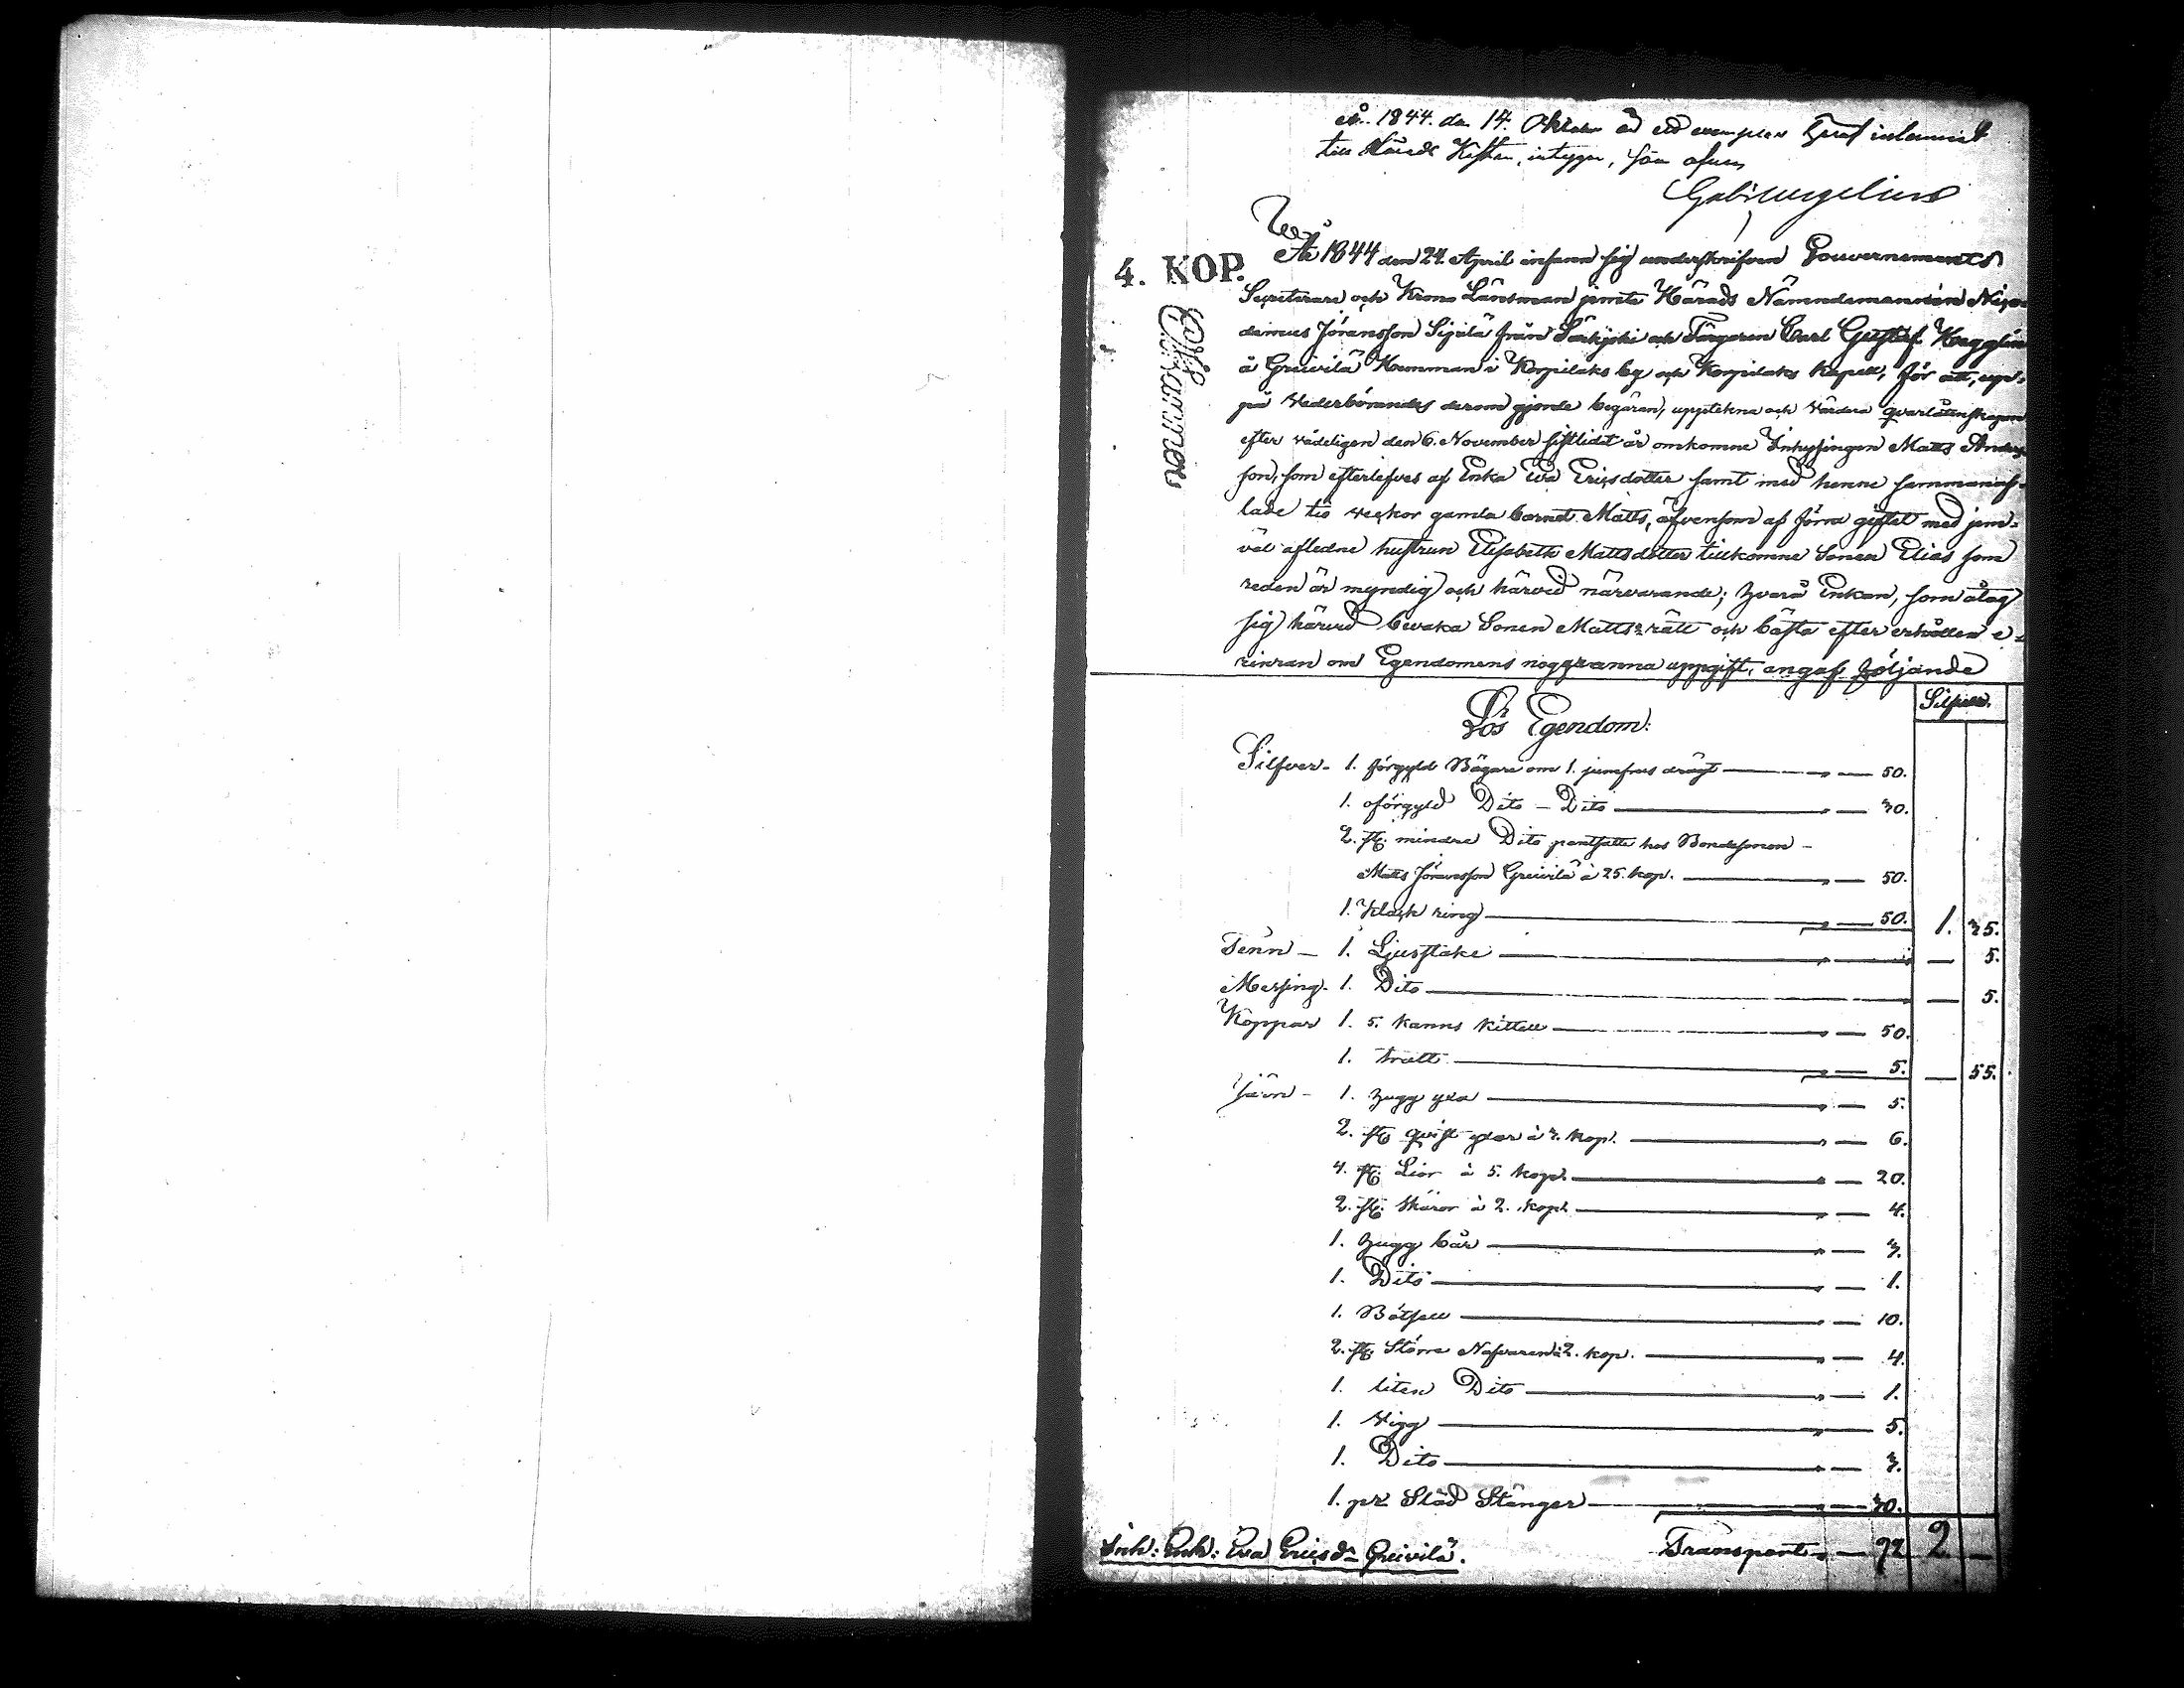 År 1844. den 14. Oktober är ett exemplar häraf inlemnat
till Härads Kistan, intygar, som ofvan
4. KOP.
År 1844 den 24. April infann sig underskrifven Gouvernements
Secreterare och Krono Länsman jemte Härads Nämndemannen Nico-
demus Jöransson Sipilä från Särkijoki och Färgaren Carl Gustaf Hægglun
å Greivilä Hemman i Korpilaks by och Korpilaks Kapell, för att, upp-
på Vederbörandes derom gjorde begäran, uppteckna och värdera qvarlåtenskapen
efter vådeligen den 6. November sistlidit år omkomne Inhysingen Matts Anders-
son, som efterlefves af Enka Eva Ericsdotter samt med henne sammanaf-
lade tio veckor gamla barnet Matts, äfvensom af förra giftet med jem-
väl aflidne hustrun Elisabeth Mattsdotter tillkomne Sonen Elias som
reden är myndig och härvid närvarande; hvarå Enkan, som åtog
sig härvid bevaka Sonen Matts's rätt och bästa efter erhållen e-
rinran om Egendomens noggranna uppgift, angaf följande
Silfver.
Lös Egendom:
Silfver - 1. förgyld Bägare om 1. jumfrus drägt — " — 50.
1. oförgyld Dito - Dito — " — 30.
2. st. mindre Dito pantsatte hos Bondesonen -
Matts Jöransson Greivilä à 25. kop. — " — 50.
1. Klack ring — " — 50. 1. 75.
Tenn - 1. Ljusstake — " — 5.
Messing - 1. Dito — 5.
Koppar 1. 5. kanns kittell — " — 50.
1. tratt — " — 5. — 55.
Järn - 1. hugg yxa — " — 5.
2. st. qvist yxor à 3. kop. — " — 6.
4. st. Lior à 5. kop. — " — 20.
2. st. skäror à 2. kop. — " — 4.
1. hugg bår — " — 3.
1. Dito — " — 1.
1. — " — 10.
2. st. Större Nafvaren à 2. kop. — " — 4.
1. liten Dito — " — 1.
1. Vigg — " — 5.
1. Dito — " — 3.
1. pr Släd Stänger — " — 30.
Inh: Enk: Eva Ericsdr Greivilä. Transport " — 92 2 —